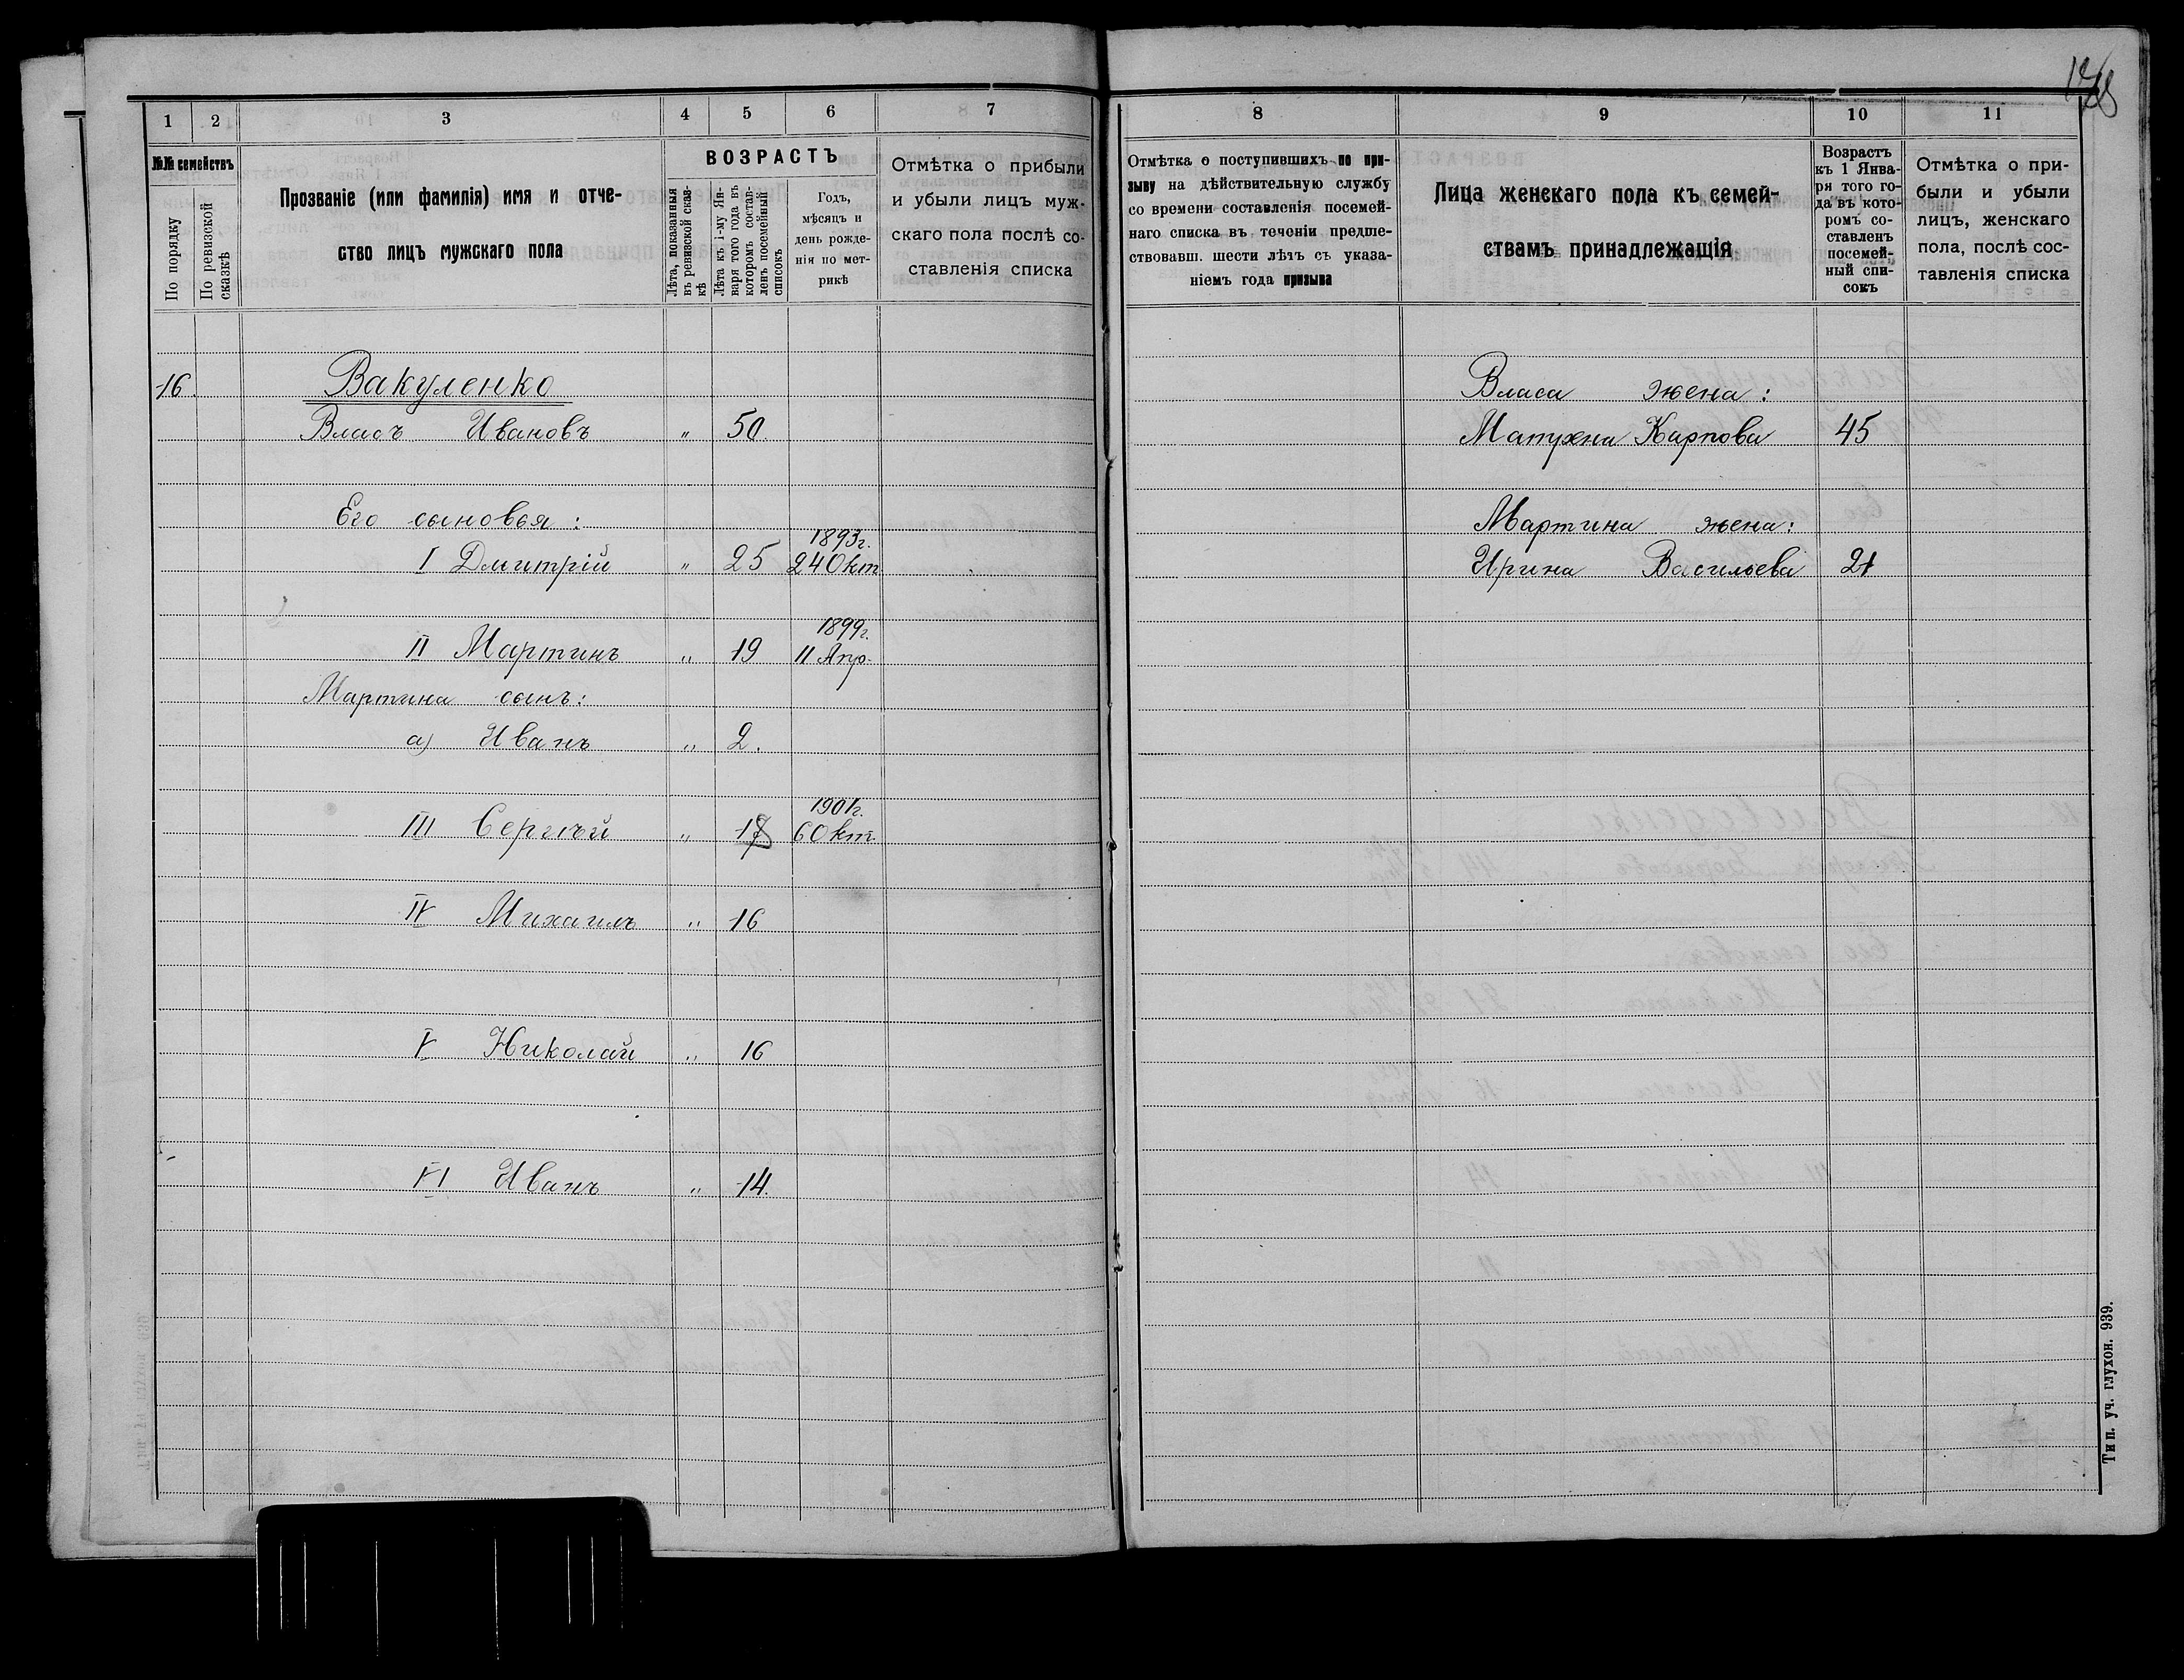 1 2 3 4 5 6 7
№№ семействъ
По порядку
По ревизской сказкѣ
Прозваніе (или фамилія) имя и отче-
ство лицъ мужскаго пола
ВОЗРАСТЪ
Лѣта, показанныя
въ ревизской сказ-
кѣ
Лѣта къ 1-му Ян-
варя того года въ
которомъ состав-
ленъ посемейный
списокъ
Годъ,
мѣсяцъ и
день рожде-
нія по мет-
рикѣ
Отмѣтка о прибыли
и убыли лицъ муж-
скаго пола послѣ со-
ставленія списка
16. Вакуленко
Власъ Ивановъ " 50.
Его сыновья:
1893г.
I Дмитрій " 25 24 Окт
1899г.
II Мартинъ " 19 11 Апр.
Мартина сынъ:
а) Иванъ " 2.
1901г.
III Сергѣй " 6 Окт.
IV Михаилъ " 16
V Николай " 16
VI Иванъ " 14.
8 9 10 11
Отмѣтка о поступившихъ по при-
зыву на дѣйствительную службу
со времени составленія посемей-
наго списка въ теченіи предше-
ствовавш. шести лѣтъ съ указа-
ніемъ года призыва
Лица женскаго пола къ семей-
ствамъ принадлежащія
Возрастъ
къ 1 Янва-
ря того го-
да въ кото-
ромъ со-
ставленъ
посемей-
ный спи-
сокъ
Отмѣтка о при-
были и убыли
лицъ, женскаго
пола, послѣ сос-
тавленія списка
Власа жена:
Матрена Карпова 45
Мартина жена:
Ирина Васильева 21
Тип. уч. глухон. 939.